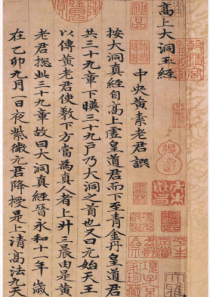 高上大洞玉經
中央黃素老君譔
按大洞真經自高上虛皇道君而下至青金丹皇道君
共三十九章下暎三十九戶乃大洞之首也又曰元始天王
以傳黃老君使教下方當為真人者上升三晨由是黃
老君揔此三十九章故曰大洞真經晉永和十一年歲
在乙卯九月一日夜紫微元君降授是上清高法九天